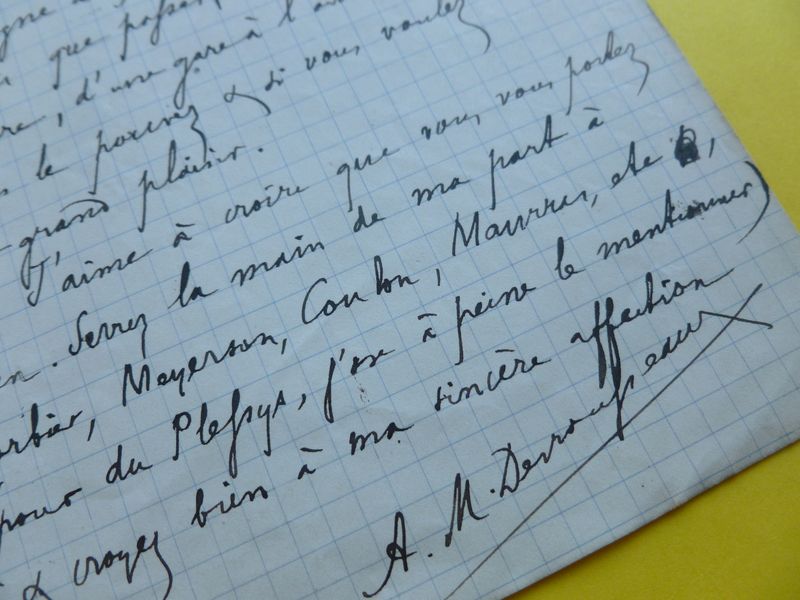 que passer
, d'une gare à l'a
le pouvez & si vous voulez
grand plaisir.
J'aime à croire que vous vous portez
en. Serrez la main de ma part à
rbier, Meyerson, Coulon, Maurras, etc ,
pour du Plessys, j'ose à peine le mentionner)
& croyez bien à ma sincère affection
A. M. Desrousseaux